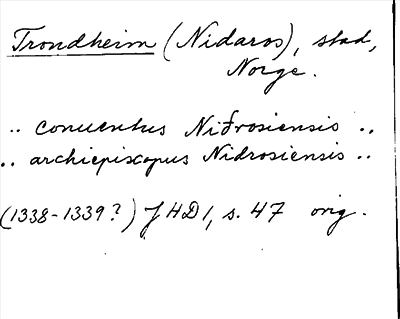 Trondheim (Nidaros), stad,
Norge.
.. conuentus Niðrosiensis ..
.. archiepiscopus Nidrosiensis ..
(1338-1339?) JHD 1, s. 47 orig.